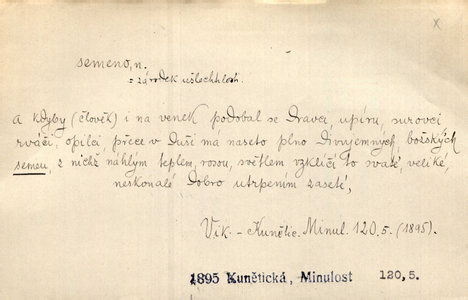 x
semeno, n.
= zárodek ušlechtilosti.
A kdyby (člověk) i na venek podobal se dravci, upíru, surovci
rváči, opilci, přece v duši má naseto plno divujemných, božských
semen, z nichž náhlým teplem, rosou, světlem vzklíčí to svaté, veliké,
neskonalé dobro utrpením zaseté,
Vik.-Kunětic. Minul. 120, 5. (1895).
1895 Kunětická, Minulost 120, 5.